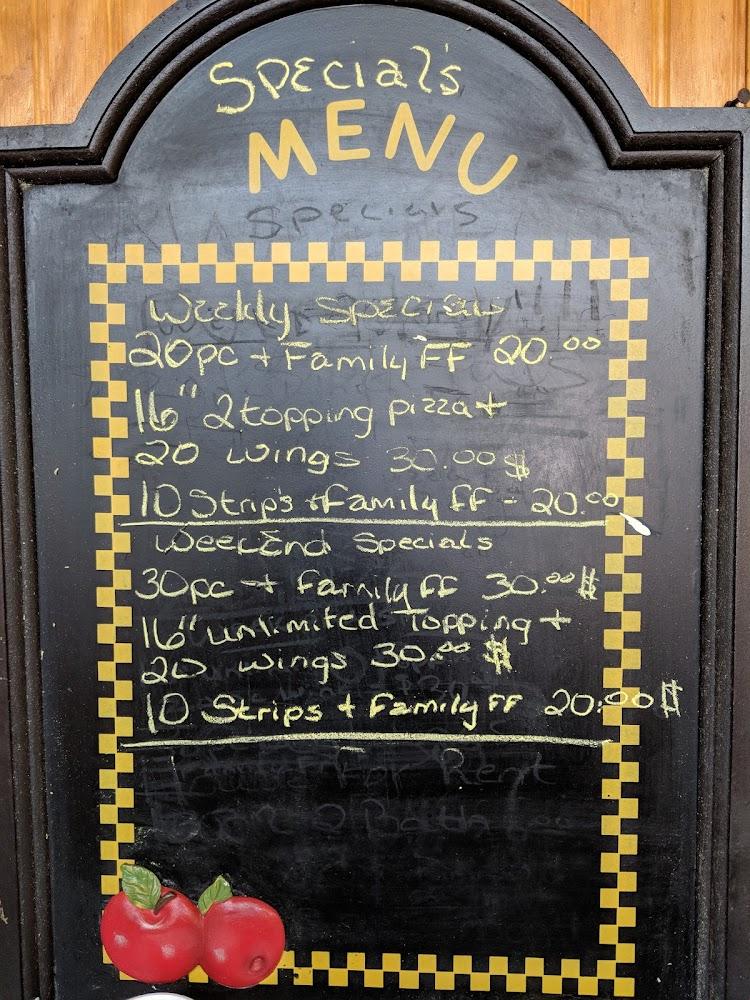 Special's
MENU
Specials
Weekly Specials
20pc + Family FF 20.00
16" 2 topping pizza +
20 wings 30.00$
10 Strips + Family FF - 20.00
WeekEnd Specials
30pc + Family FF 30.00$
16" unlimited Topping +
20 wings 30.00 $
10 Strips + Family FF 20.00$
For Rent
Bath